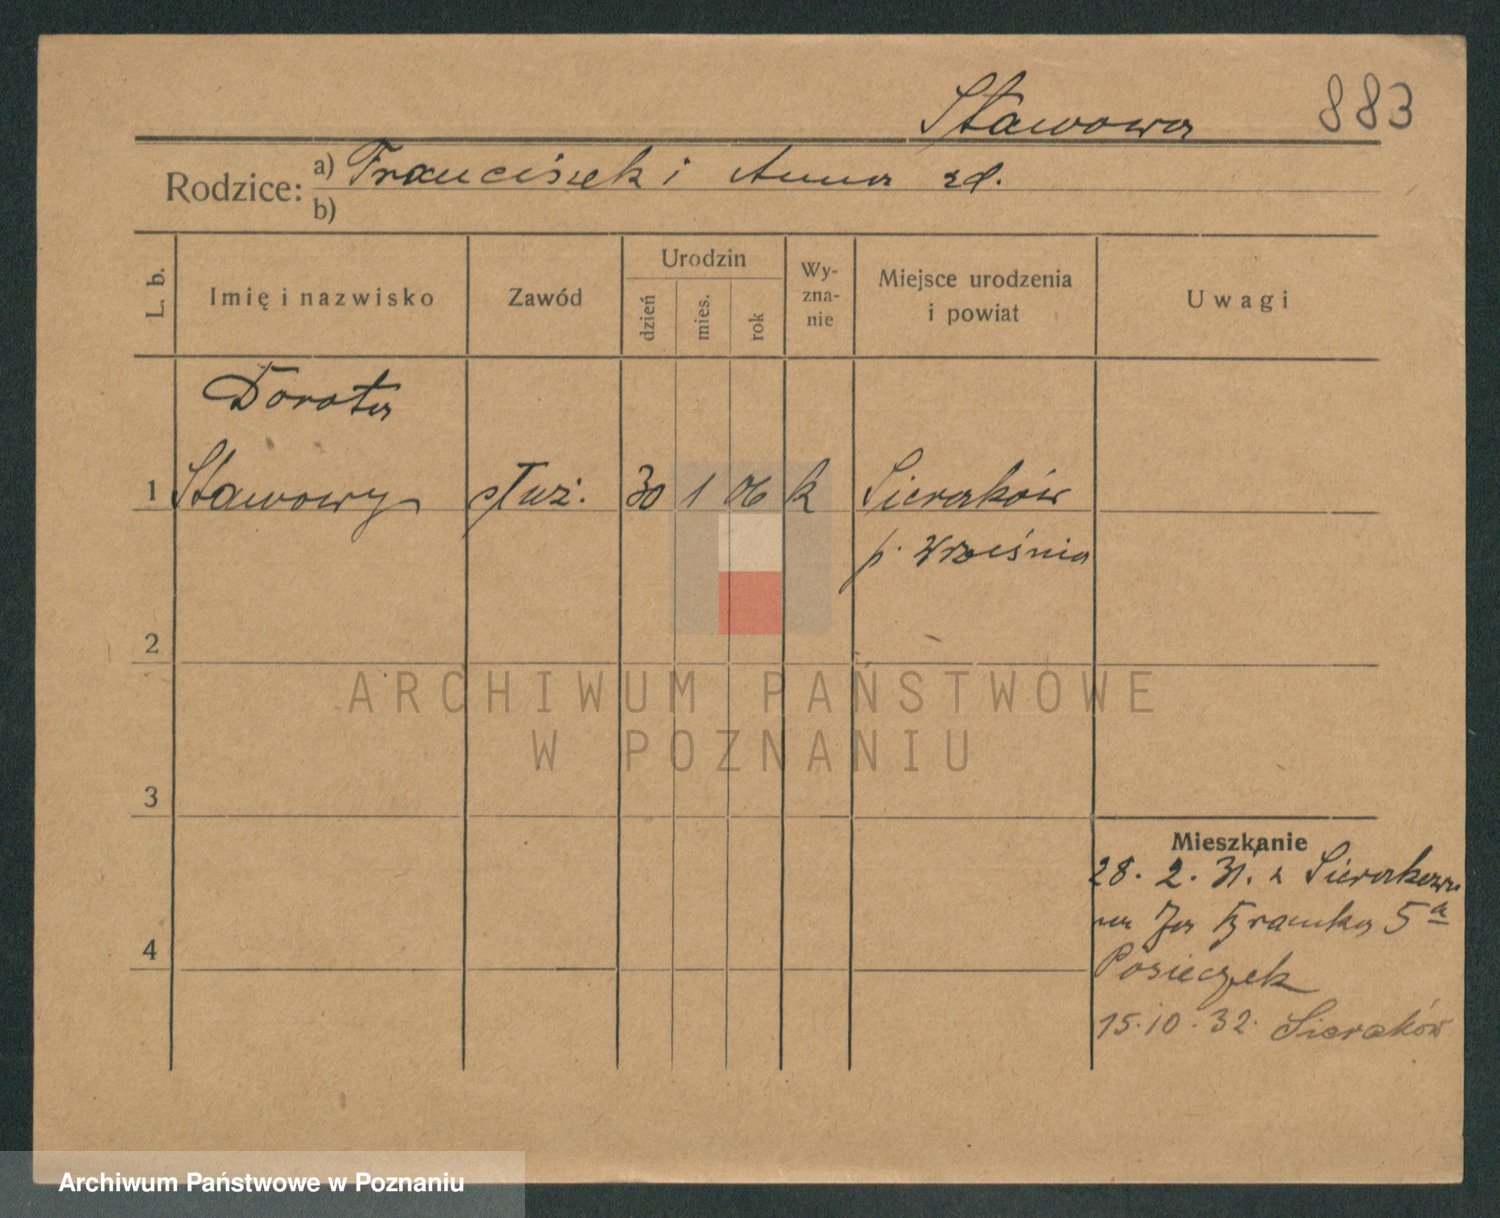 Stawowa 883
Rodzice: a) Franciszek i Anna zd.
b)
L. b. Imię i nazwisko Zawód Urodzin dzień mies. rok Wy-zna-nie Miejsce urodzenia i powiat Uwagi
Dorota
1 Stawowy służ. 30 1 06 k Sieraków
p. Września
2
ARCHIWUM PAŃSTWOWE
W POZNANIU
3
Mieszkanie
28. 2. 31. z Sierakowa
na 5a
4
Posieczek
15.10.32. Sieraków
Archiwum Państwowe w Poznaniu